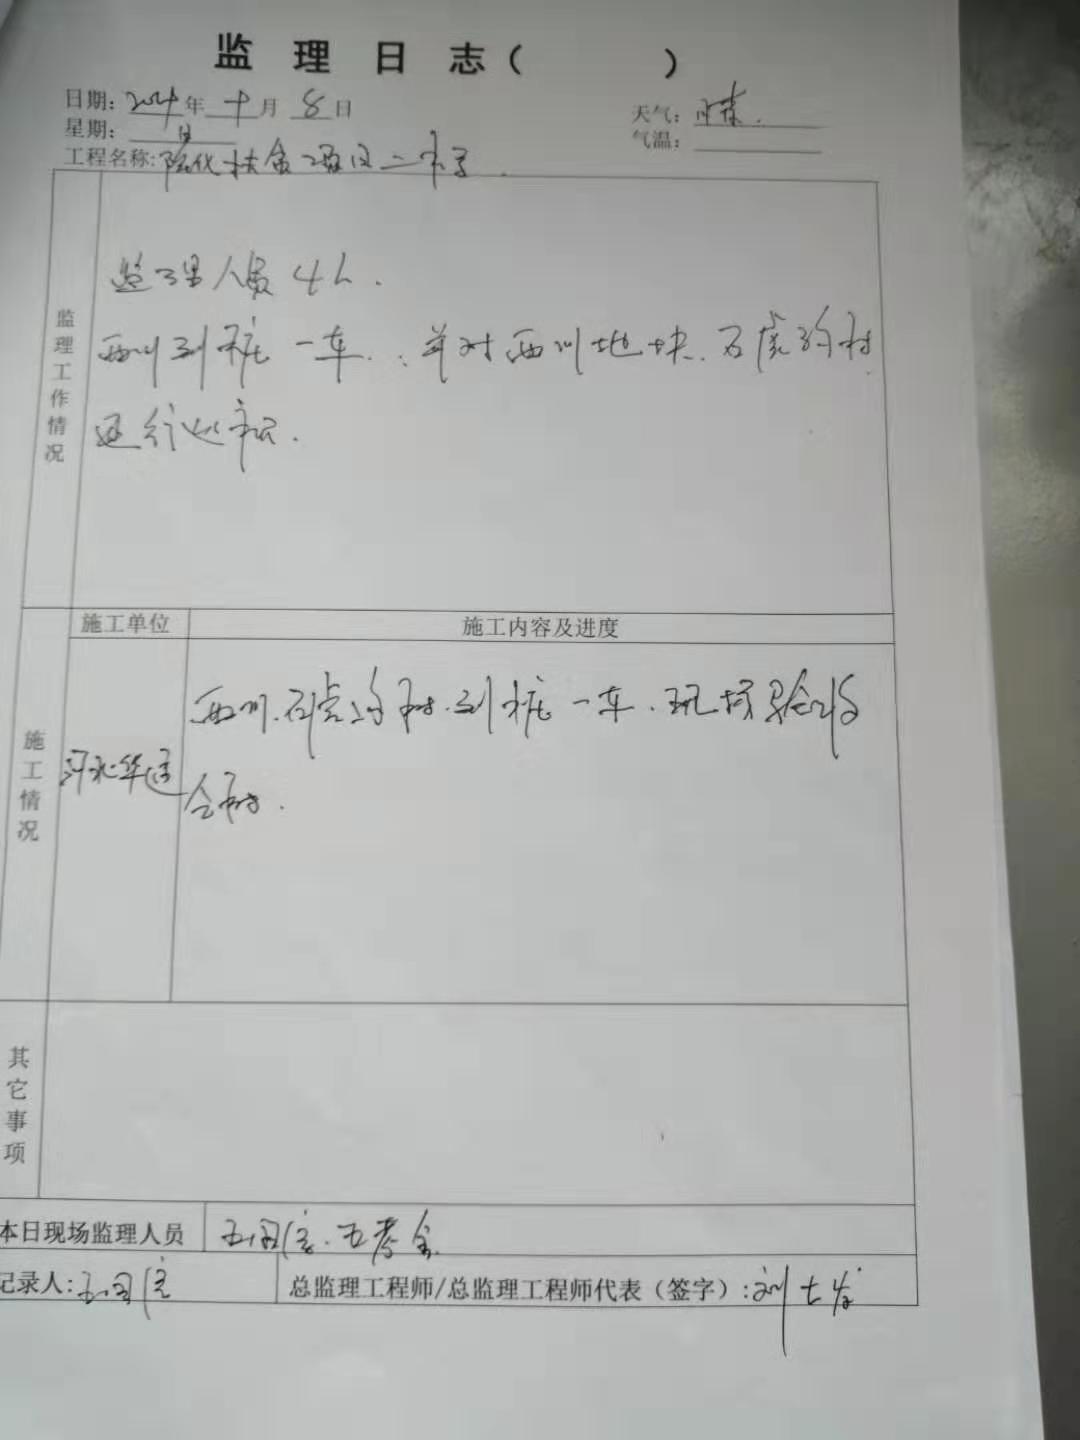 监 理 日 志（ ）
日期: 年 十 月 8 日
天气: 晴.
星期: 日
气温:
工程名称: 隆化扶贫项目二标
监理工作情况
监理人员 4人.
西川到桩一车. 并对西川地块. 石虎沟村
进行巡视.
施工情况
施工单位
施工内容及进度
河北华通
西川.石虎沟村.到桩一车.现场验收
合格.
其它事项
本日现场监理人员
记录人:
总监理工程师/总监理工程师代表（签字）: